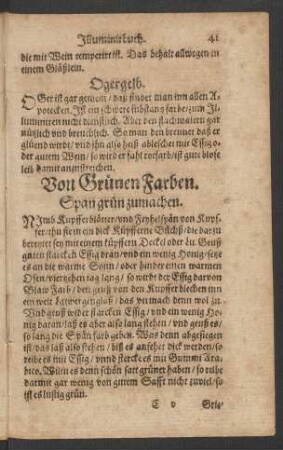 Illuminirbuch. 41
die mit Wein temperirt ist. Das behalt allwegen in
einem Gläßlein.
Ogergelb.
OGer ist gar gemein / daß findet man inn allen A-
potecken. Ist ein schwere substantz farbe / zum Il-
luminiren nicht dienstlich. Aber den stachmalern gar
nützlich und breuchlich. So man den brennet daß er
glüend wirdt / und ihn also heiß ableschet mit Essig o-
der gutem Wein / so wird er fast rotfarb / ist gute blosse
leib damit anzustreichen.
Von Grünen Farben.
Span grün zumachen.
NImb Kupffer blätter / und Feyhelspän von Kupf-
fer / thu sie in ein dick Küpfferne Büchß / die darzu
bereytet sey mit einem küpffern Deckel oder Geuß
guten starcken Essig dran / und ein wenig Honig / setze
es an die warme Sonn / oder hinder einen warmen
Ofen / vierzehen tag lang / so wirdt der Essig darvon
Blaw Farb / den geuß von den Kupffer blechen inn
ein weit das vermach denn wol zu.
Und geuß wider starcken Essig / und ein wenig Ho-
nig daran / laß es aber also lang stehen / und geuß es /
so lang die Spän farb geben. Was denn abgesigen
ist / das laß also stehen / biß es ansehet dick werden / so
reibe es mit Essig / unnd stercke es mit Gummi Ara-
bico. Wilin es denn schön satt grüner haben / so reibe
darmit gar wenig von gutem Safft nicht zuviel / so
ist es lustig grün.
C v Grü-